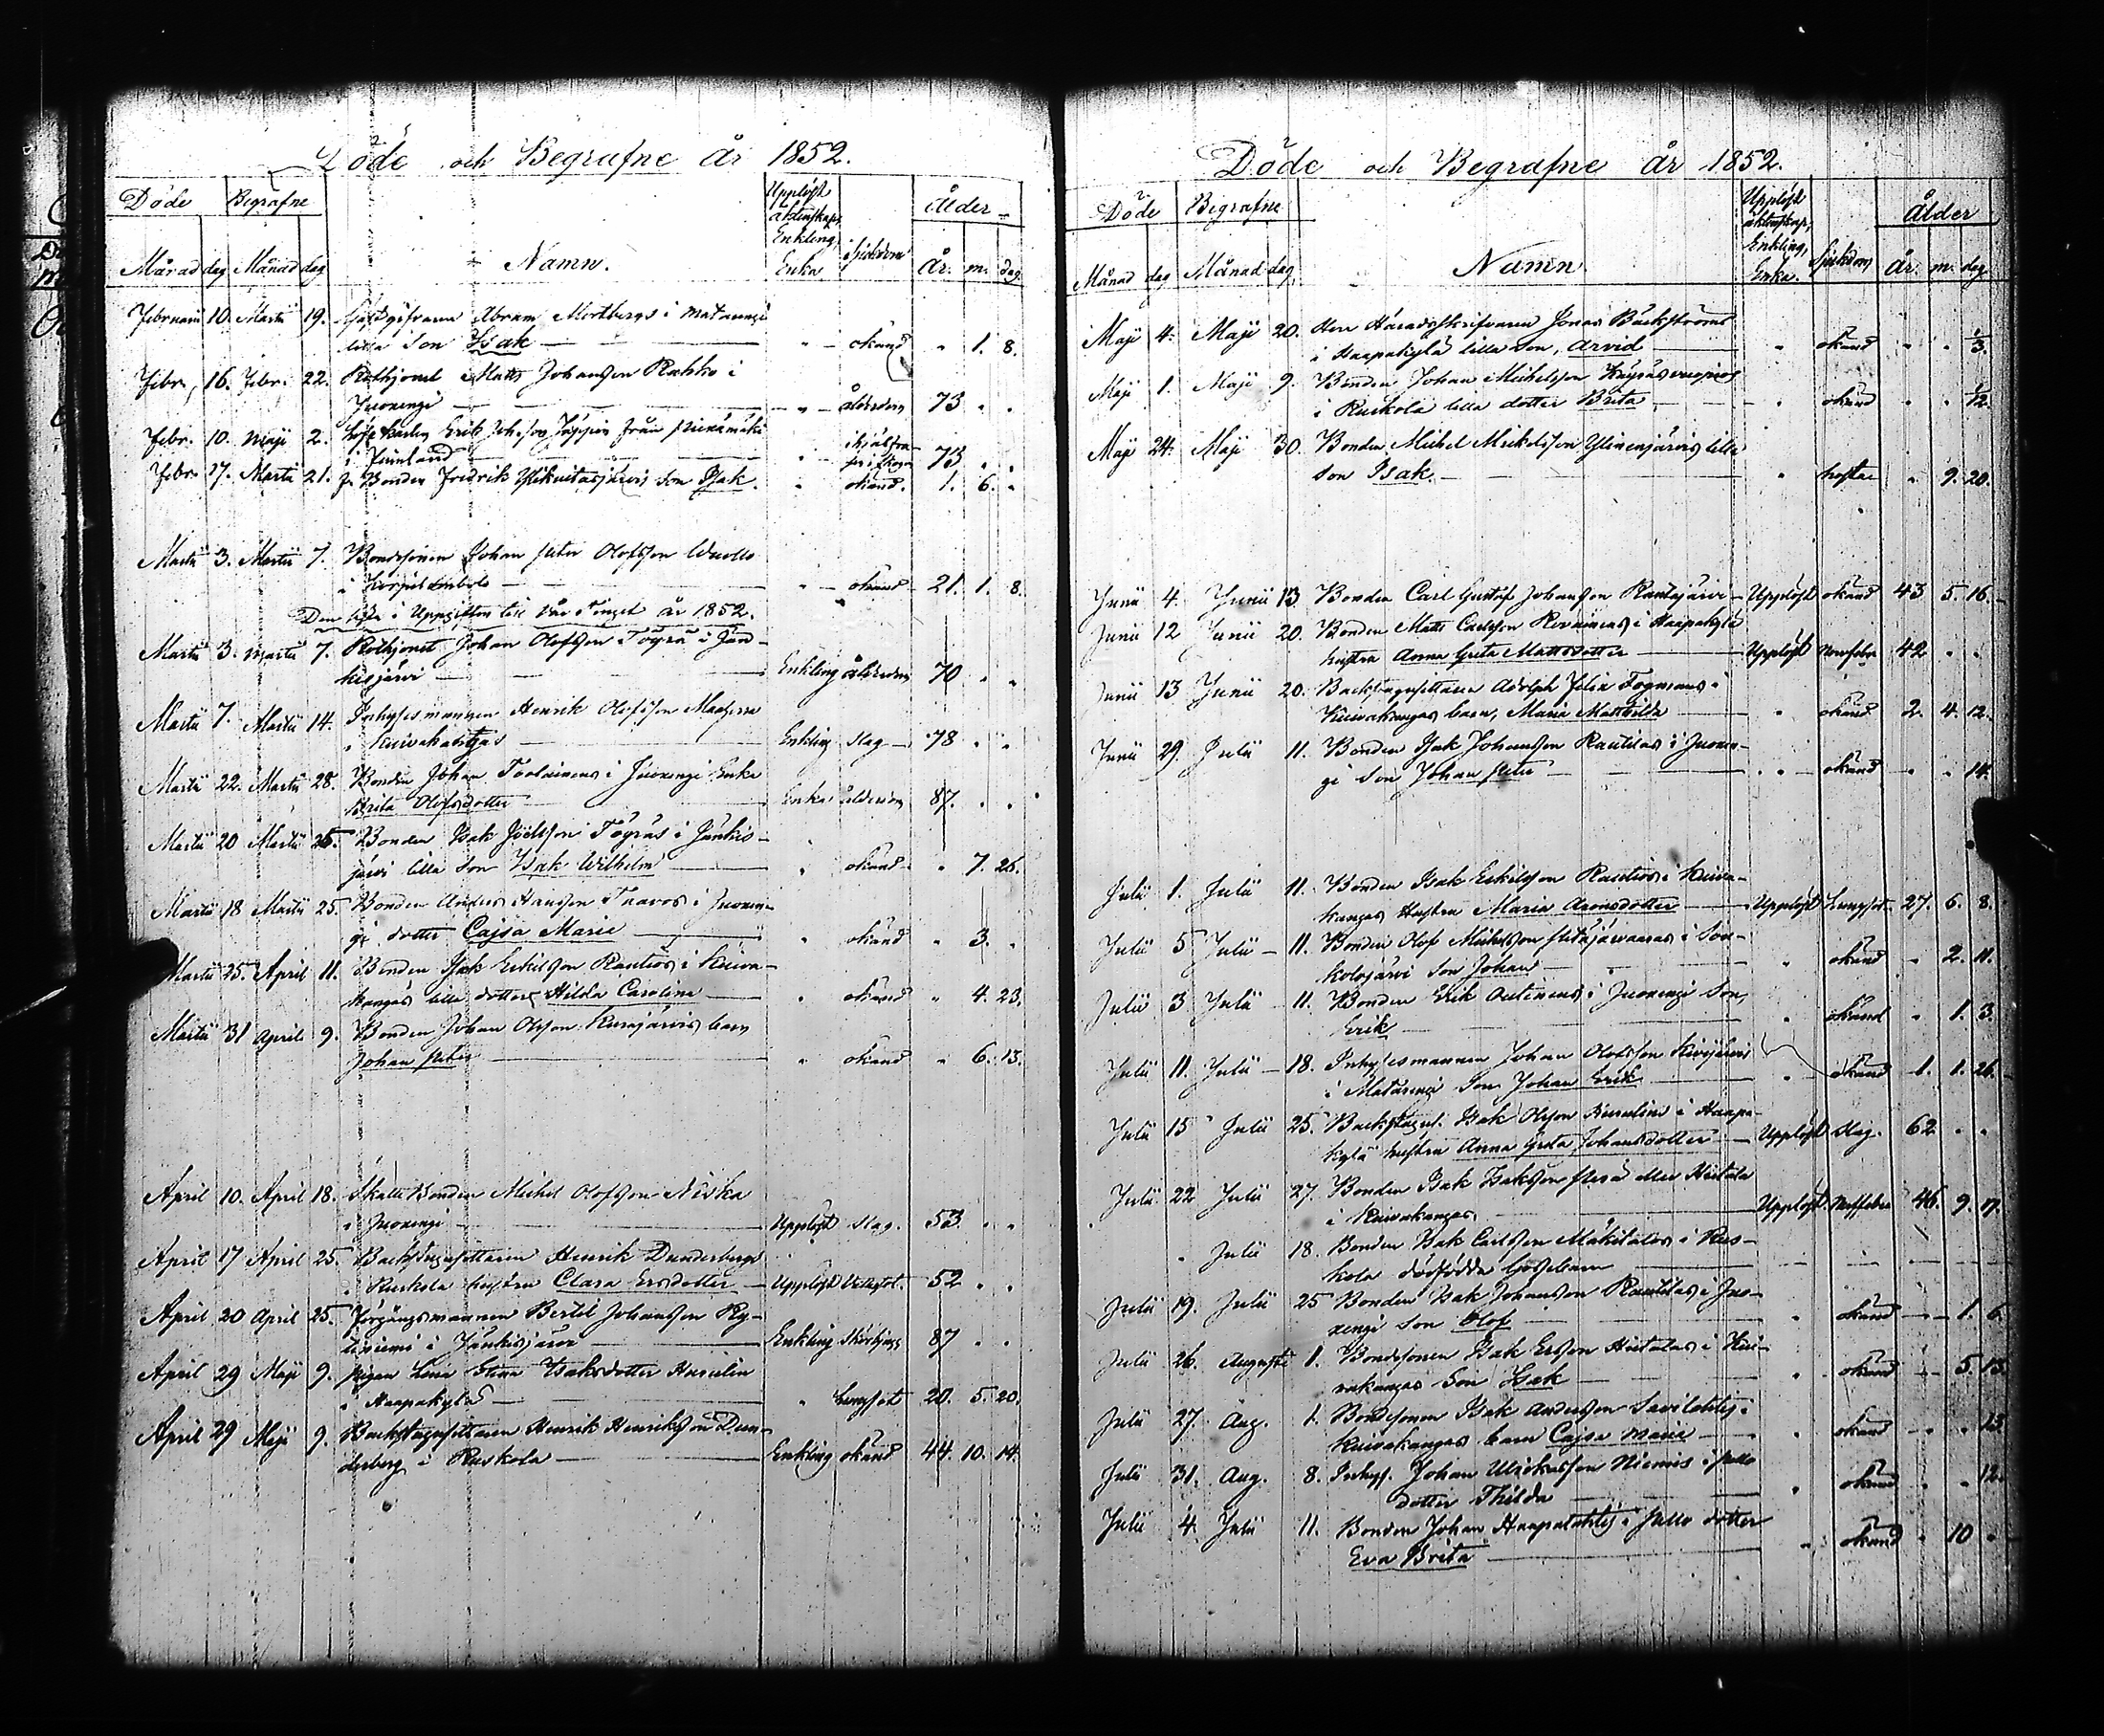 Döde och Begrafne år 1852.
Döde Begrafne Upplöst äktenskap, Enkling, Enka Sjukdom Ålder
Månad dag Månad dag Namn. År. m. dag.
Februarii 10. Martii 19. Gästgifvaren Abram Mörtbergs i Matarengi
lilla Son Isak okänd " 1. 8.
Febr. 16. Febr. 22. Rothjonet Matts Johansson Rahko i
Juoxengi ålderdom 73 " "
Febr. 10. Maji 2. Erik Joh:sson från
i Finland 73 " "
Febr. 17. Martii 21. Bonden Fredrik son Isak. " okänd. 1. 6. "
Martii 3. Martii 7. Bondsonen Johan Peter Olofsson Wuollo
i okänd 21. 1. 8.
Den i Uppgiften till år 1852.
Martii 3. Martii 7. Rothjonet Johan Olofsson Töyrä i Jän-
kisjärvi Enkling ålderdom 70 " "
Martii 7. Martii 14. Inhysesmannen Henrik Olofsson
i Kuivakangas Enkling slag 78 " "
Martii 22. Martii 28. Bonden Johan i Juoxengi Enka
Brita Olofsdotter Enka ålderdom 87. " "
Martii 20 Martii 25. Bonden Isak Joelsson Töyräs i Jänkis-
järvi lilla Son Isak Wilhelm " okänd " 7. 26.
Martii 18 Martii 25. Bonden Anders Hansson Taavos i Juoxen-
gi dotter Cajsa Maria " okänd " 3. "
Martii 25. April 11. Bonden Isak Eskilsson Rautios i Kuiva-
kangas lilla dotter Hilda Carolina " okänd " 4. 23.
Martii 31 April 9. Bonden Johan Olsson barn
Johan Peter " okänd " 6. 13.
April 10. April 18. Skatte Bonden Michel Olofsson Niska
i Juoxengi Upplöst slag. 53 " "
April 17 April 25. Backstugusittaren Henrik Dunderbergs
i Ruskola hustru Clara Ersdotter Upplöst 52 " "
April 20 April 25. Förgångsmannen Bertil Johansson Ky-
i Jänkisjärvi Enkling 87 " "
April 29 Maji 9. Pigan Lena Stina Isaksdotter Hurulin
i Haapakylä " Lungsot 20. 5. 20.
April 29 Maji 9. Backstugusittaren Henrik Henriksson Dun-
derberg i Ruskola Enkling okänd 44. 10. 14.
Döde och Begrafne år 1852.
Döde Begrafne Upplöst äktenskap, Enkling, Enka. Sjukdom Ålder
Månad dag Månad dag. Namn År. m. dag
Maji 4. Maji 20. Herr Häradsskrifvaren Jonas Bäckströms
i Haapakylä lilla Son, Arvid " okänd " " 1/3.
Maji 1. Maji 9. Bonden Johan Michelsson
i Ruskola lilla dotter Brita " okänd " " 1/2.
Maji 24. Maji 30. Bonden Michel Michelsson Ylinenjärvis lilla
Son Isak. " hosta " 9. 20.
Junii 4. Junii 13. Bonden Carl Gustaf Johansson Rautajärvi Upplöst okänd 43 5. 16.
Junii 12 Junii 20. Bonden Matts Carlsson i Haapakylä
hustru Anna Greta Mattsdotter Upplöst 42 " "
Junii 13 Junii 20. Backstugusittaren Adolph Felix Fogmans i
Kuivakangas barn, Maria Mathilda " okänd 2. 4. 12.
Junii 29. Julii 11. Bonden Isak Johansson Rautilas i Juoxen-
gi Son Johan Peter " okänd " " 14.
Julii 1. Julii 11. Bonden Isak Eskilsson Rautios i Kuiva-
kangas Hustru Maria Aronsdotter Upplöst Lungsot 27. 6. 8.
Julii 5 Julii 11. Bonden Olof Michelsson i Son-
kolojärvi Son Johan " okänd " 2. 11.
Julii 3 Julii 11. Bonden Erik i Juoxengi Son,
Erik " okänd " 1. 3.
Julii 11. Julii 18. Inhysesmannen Johan Olofsson
i Matarengi Son Johan Erik " okänd 1. 1. 26.
Julii 15 Julii 25. Backstugus. Isak Olsson Huruulins i Haapa-
kylä hustru Anna Greta Johansdotter Upplöst slag. 62 " "
Julii 22 Julii 27. Bonden Isak Isaksson eller Hietala
i Kuivakangas Upplöst 46. 9. 17.
" Julii 18. Bonden Isak Carlsson Mäkitalos i Rus-
kola dödfödda Gossebarn
Julii 19. Julii 25 Bonden Isak Johansson Rautilas i Juo-
xengi Son Olof " okänd 1. 6.
Julii 26. Augusti 1. Bondsonen Isak Ersson Hietalas i Kui-
vakangas Son Isak " okänd 5. 13.
Julii 27. Aug. 1. Bondsonen Isak Andersson i
Kuivakangas barn Cajsa Maria " okänd " " 13
Julii 31. Aug. 8. Inhys. Johan Ulriksson Niemis i Pello
dotter Thilda " okänd " " 12.
Julii 4. Julii 11. Bonden Johan i Pello dotter
Eva Brita " okänd " 10 "